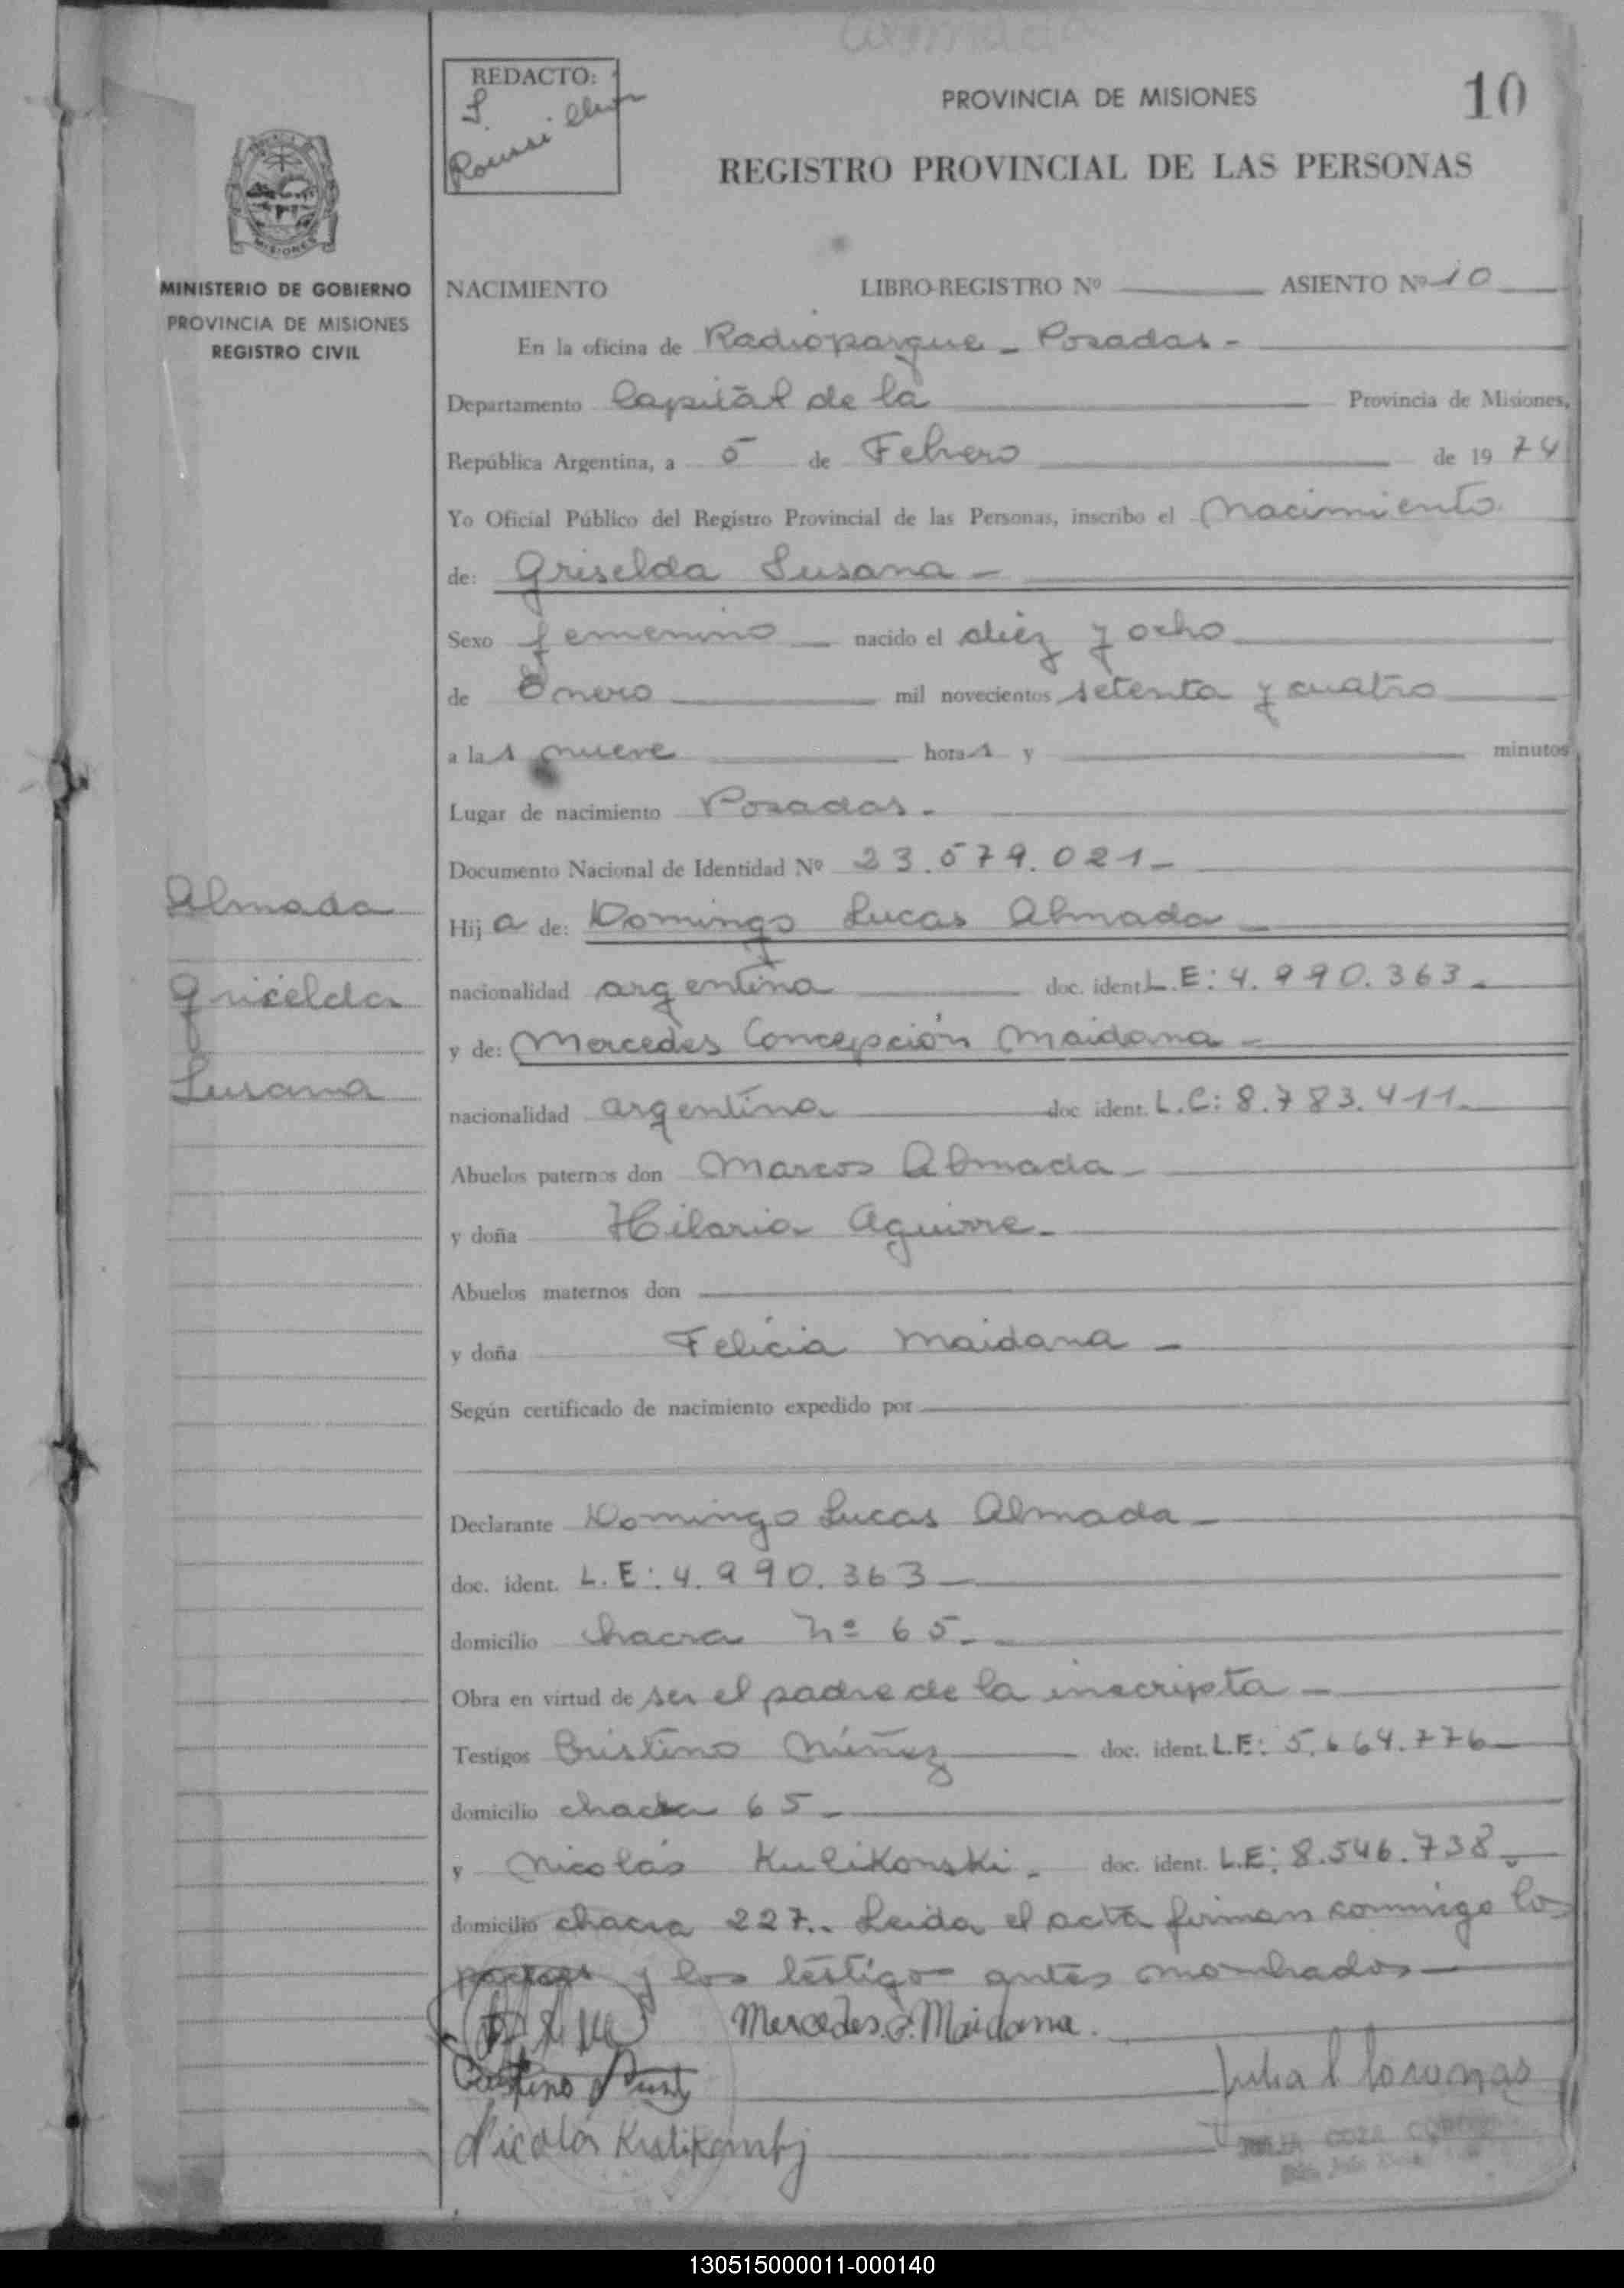 REDACTO:
PROVINCIA DE MISIONES
10
REGISTRO PROVINCIAL DE LAS PERSONAS
MISIONES
MINISTERIO DE GOBIERNO
PROVINCIA DE MISIONES
REGISTRO CIVIL
NACIMIENTO LIBRO-REGISTRO Nº ASIENTO Nº 10
En la oficina de Radioparque - Posadas -
Departamento Capital de la Provincia de Misiones,
República Argentina, a 5 de Febrero de 1974
Yo Oficial Público del Registro Provincial de las Personas, inscribo el Nacimiento
de: Griselda Susana -
Sexo femenino nacido el diez y ocho
de Enero mil novecientos setenta y cuatro
a las nueve horas y minutos
Lugar de nacimiento Posadas -
Documento Nacional de Identidad Nº 23.579.021 -
Almada
Griselda
Susana
Hija de: Domingo Lucas Almada -
nacionalidad argentina doc. ident. L.E: 4.990.363 -
y de: Mercedes Concepción Maidana -
nacionalidad argentina doc. ident. L.C: 8.783.411 -
Abuelos paternos don Marcos Almada -
y doña Hilaria Aguirre -
Abuelos maternos don
y doña Felicia Maidana -
Según certificado de nacimiento expedido por
Declarante Domingo Lucas Almada -
doc. ident. L.E: 4.990.363 -
domicilio chacra Nº 65 -
Obra en virtud de ser el padre de la inscripta -
Testigos Cristino Núñez doc. ident. L.E: 5.664.776
domicilio chacra 65 -
y Nicolás Kulikonski - doc. ident. L.E: 8.546.738 -
domicilio chacra 227.. Leida el acta firman conmigo los
padres y los testigos antes nombrados
Mercedes C. Maidana.
Nicolás
130515000011-000140